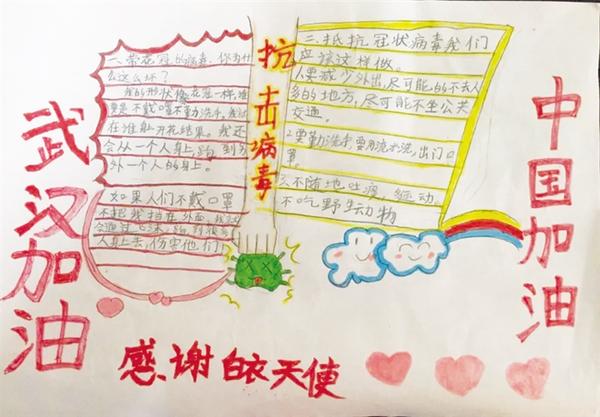 武汉加油
一、带花冠的病毒,你为什
么这么坏?
我的形状像花冠一样,谁
要是不戴口罩不勤洗手,我就
在谁身上开花结果。我还
会从一个人身上跑到另
外一个人的身上。
如果人们不戴口罩
不把我挡在外面,我就
会通过飞沫,跑到很多
人身上去,伤害他们
抗击病毒
三、抵抗冠状病毒我们
应该这样做。
人要减少外出,尽可能的不去人
多的地方,尽可能不坐公共
交通。
2要勤洗手要用流水洗,出门口
罩。
3不随地吐痰,
不吃野生动物
中国加油
感谢白衣天使